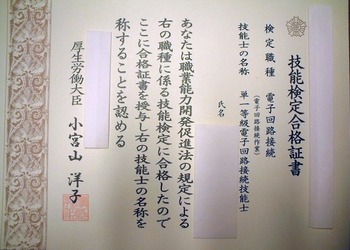 技能検定合格証書
検定職種 電子回路接続
(電子回路接続作業)
技能士の名称 単一等級電子回路接続技能士
氏名
あなたは職業能力開発促進法の規定による
右の職種に係る技能検定に合格したので
ここに合格証書を授与し右の技能士の名称を
称することを認める
厚生労働大臣 小宮山洋子